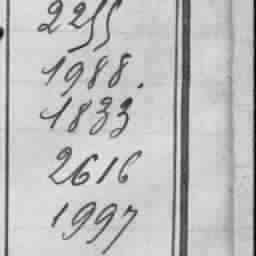 2255
1988.
1833
2616
1997